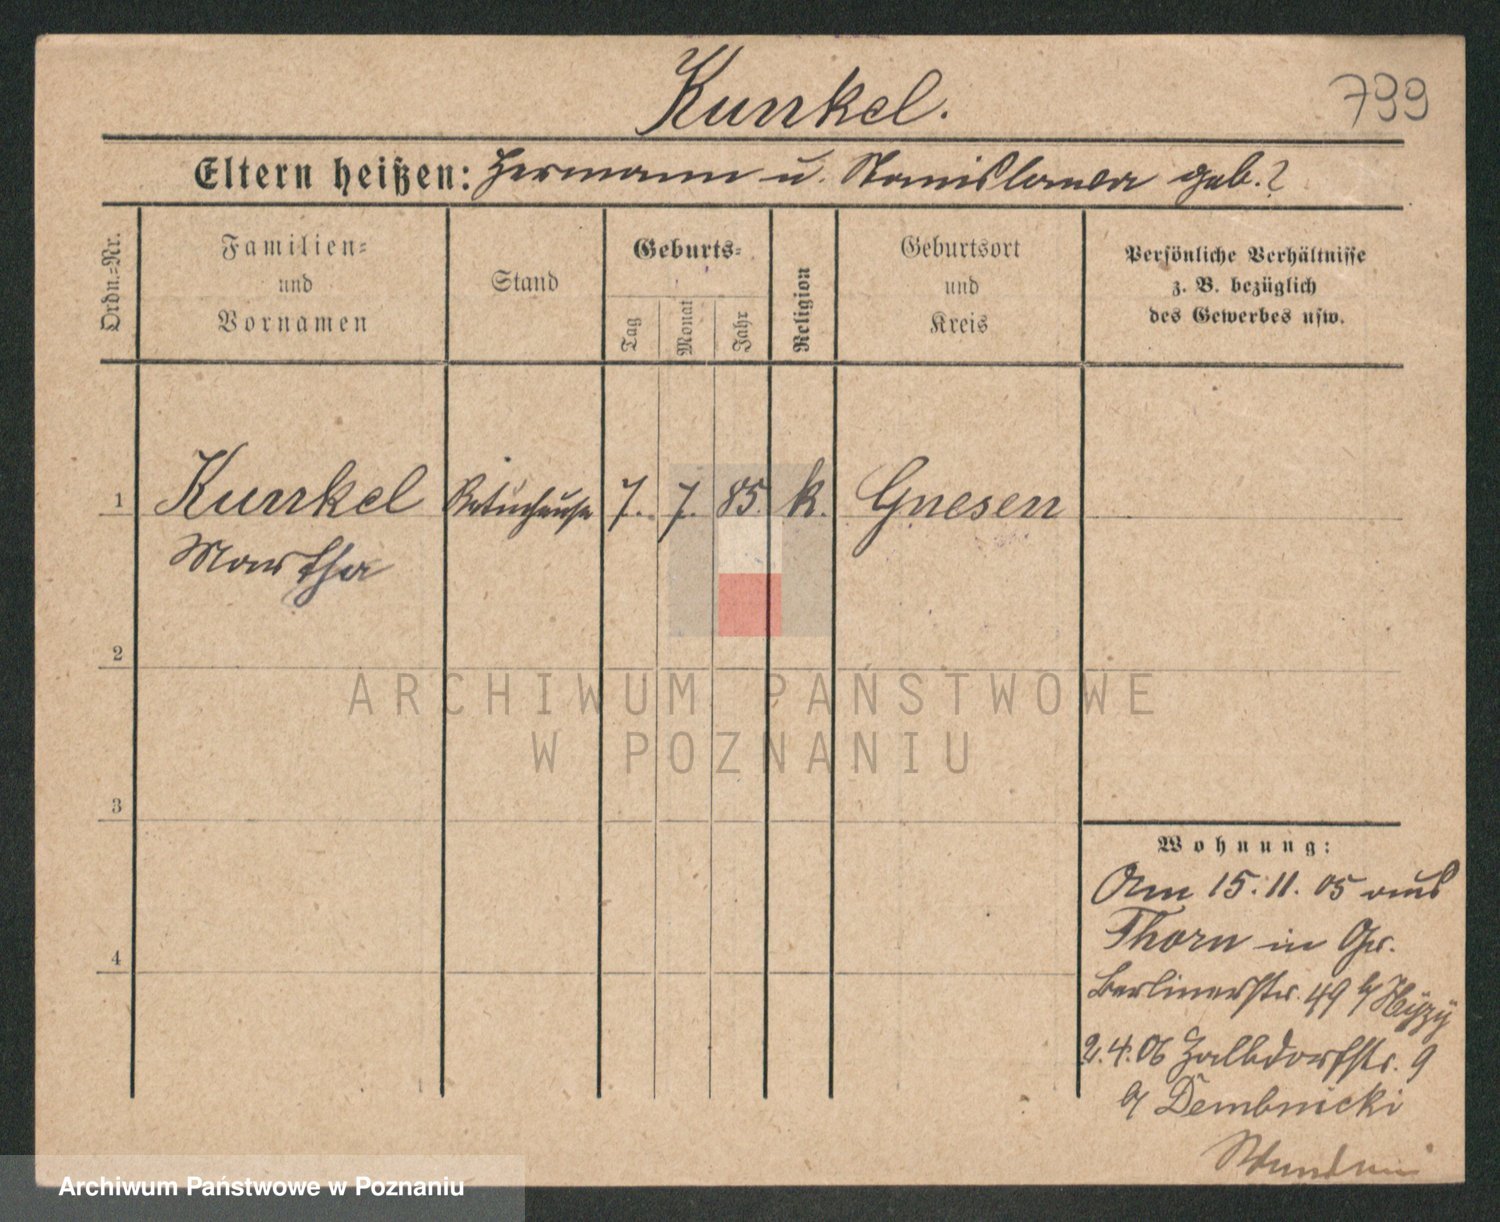 Kunkel.
799
Eltern heißen: Hermann u. Stanislawa geb.?
Ordn.=Nr.
Familien=
und
Vornamen
Stand
Geburts=
Tag
Monat
Jahr
Religion
Geburtsort
und
Kreis
Persönliche Verhältnisse
z. B. bezüglich
des Gewerbes usw.
1 Kunkel 7. 7. 85. k. Gnesen
Martha
2
ARCHIWUM PAŃSTWOWE
W POZNANIU
3
Wohnung:
Am 15.11.05 aus
Thorn in Gr.
Berlinerstr. 49 b/
4
2.4.06 9
b/ Dembnicki
Archiwum Państwowe w Poznaniu